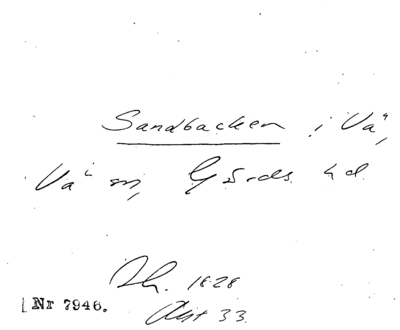 Sandbacken i Vä,
Vä sn, Gärds hd.
Ah. 1828
Akt 33.
Nr 7946.